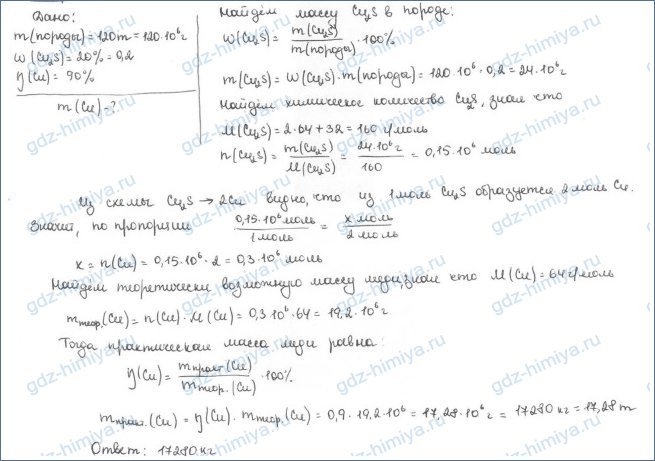 Дано:
m(породы) = 120 т = 120·10⁶ г
w(Cu₂S) = 20% = 0,2
η(Cu) = 90%
m(Cu) - ?
Найдём массу Cu₂S в породе:
w(Cu₂S) = m(Cu₂S) / m(породы) · 100%
m(Cu₂S) = w(Cu₂S) · m(породы) = 120·10⁶ · 0,2 = 24·10⁶ г
Найдём химическое количество Cu₂S, зная что
M(Cu₂S) = 2·64 + 32 = 160 г/моль
n(Cu₂S) = m(Cu₂S) / M(Cu₂S) = 24·10⁶ г / 160 = 0,15·10⁶ моль
Из схемы Cu₂S → 2Cu видно, что из 1 моль Cu₂S образуется 2 моль Cu.
Значит, по пропорции 0,15·10⁶ моль / 1 моль = x моль / 2 моль
x = n(Cu) = 0,15·10⁶ · 2 = 0,3·10⁶ моль
Найдём теоретически возможную массу меди, зная что M(Cu) = 64 г/моль
mтеор.(Cu) = n(Cu) · M(Cu) = 0,3·10⁶ · 64 = 19,2·10⁶ г
Тогда практическая масса меди равна:
η(Cu) = mпракт.(Cu) / mтеор.(Cu) · 100%
mпракт.(Cu) = η(Cu) · mтеор.(Cu) = 0,9 · 19,2·10⁶ = 17,28·10⁶ г = 17280 кг = 17,28 т
Ответ: 17280 кг
gdz-himiya.ru